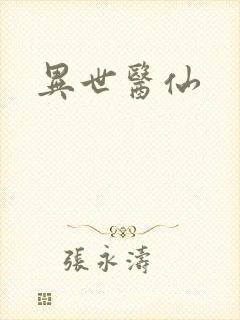 異世醫仙
張永濤